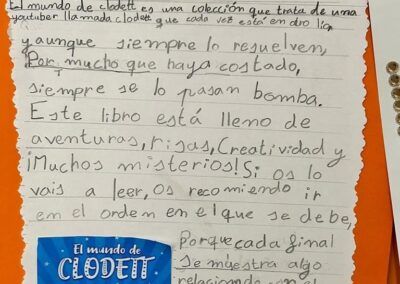 El mundo de clodett es una colección que trata de una
youtuber llamada clodett que cada vez está en otro lio,
y aunque siempre lo resuelven,
Por mucho que haya costado,
siempre se lo pasan bomba.
Este libro está lleno de
aventuras, risas, Creatividad y
¡Muchos misterios! Si os lo
vais a leer, os recomiendo ir
en el orden en el que se debe,
Porque cada final
se muestra algo
relacionado con el
El mundo de
CLODETT